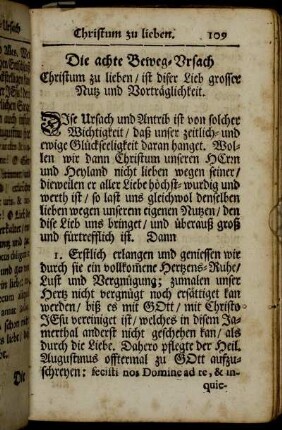 Christum zu lieben. 109
Die achte Beweg-Ursach
Christum zu lieben / ist diser Lieb grosser
Nutz und Vorträglichkeit.
DIse Ursach und Antrib ist von solcher
Wichtigkeit / daß unser zeitlich- und
ewige Glückseeligkeit daran hanget. Wol-
len wir dann Christum unseren HErrn
und Heyland nicht lieben wegen seiner /
dieweilen er aller Liebe höchst-wurdig und
werth ist / so last uns gleichwol denselben
lieben wegen unserem eigenen Nutzen / den
dise Lieb uns bringet / und überauß groß
und fürtrefflich ist. Dann
1. Erstlich erlangen und geniessen wir
durch sie ein vollkom̃ene Hertzens-Ruhe /
Lust und Vergnügung; zumalen unser
Hertz nicht vergnügt noch ersättiget kan
werden / biß es mit GOtt / mit Christo
JEsu vereiniget ist / welches in disem Ja-
merthal anderst nicht geschehen kan / als
durch die Liebe. Dahero pflegte der Heil.
Augustinus offtermal zu GOtt aufzu-
schreyen: fecisti nos Domine ad te, & in-
quie-